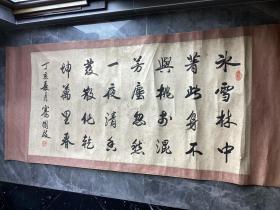 冰雪林中
著此身不
與桃李混
芳塵忽然
一夜清香
發散化乾
坤萬里春
丁亥春月